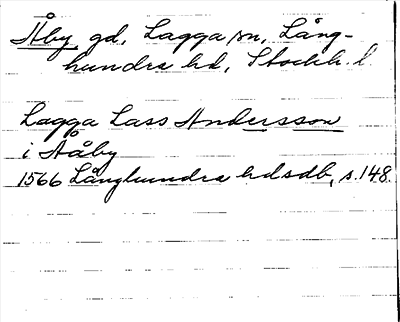 Åby, gd, Lagga sn, Lång-
hundra hd, Stockh. l.
Lagga Lass Andersson
i Aåby
1566 Långhundra hdsdb, s. 148.